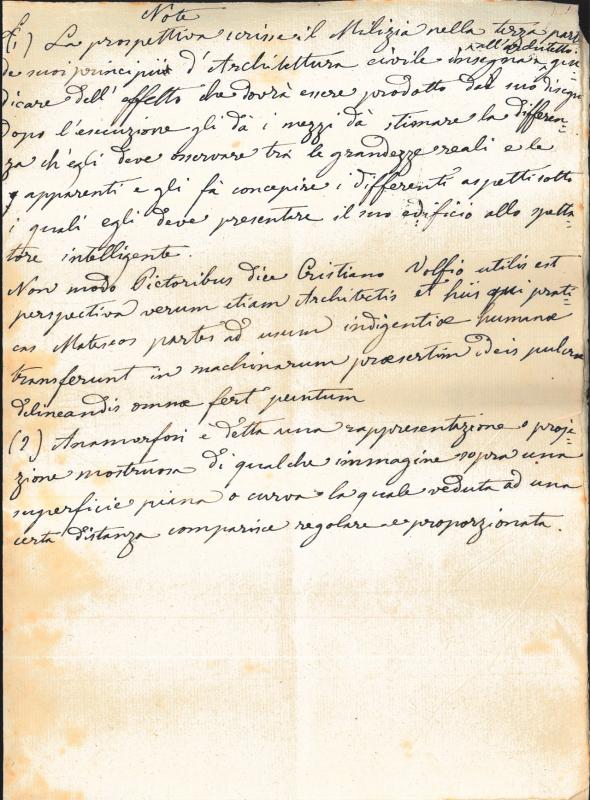 Note
(1) La prospettiva scrisse il Milizia nella terza par
te suoi principii d'Architettura civile insegna all'architetto giu
dicare dell'effetto che dovrà essere prodotto dal suo disegn
Dopo l'esecuzione gli dà i mezzi dà stimare la differen=
za ch'egli deve osservare trà le grandezze reali e le
apparenti e gli fà concepire i differenti aspetti sotto
i quali egli deve presentare il suo edificio allo spetta=
tore intelligente.
Non modo Pictoribus dice Cristiano Volfio utilis est
perspectiva verum etiam Architectis et hiis qui prati=
cas Mateseos partes ad usum indigentiæ humanæ
transferunt in machinarum præsertim ideis pulcre
delineandis omnæ fert puntum
(2) Anamorfosi e detta una rappresentazione o proje=
zione mostruosa di qualche immagine sopra una
superficie piana o curva la quale veduta ad una
certa distanza comparisce regolare e proporzionata.